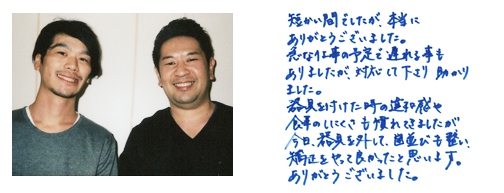 短かい間でしたが、本当に
ありがとうございました。
急な仕事の予定で遅れる事も
ありましたが、対応して下さり 助かり
ました。
器具を付けた時の違和感や
食事のしにくさも慣れてきましたが
今日、器具を外して、歯並びも整い、
矯正をやって良かったと思います。
ありがとうございました。